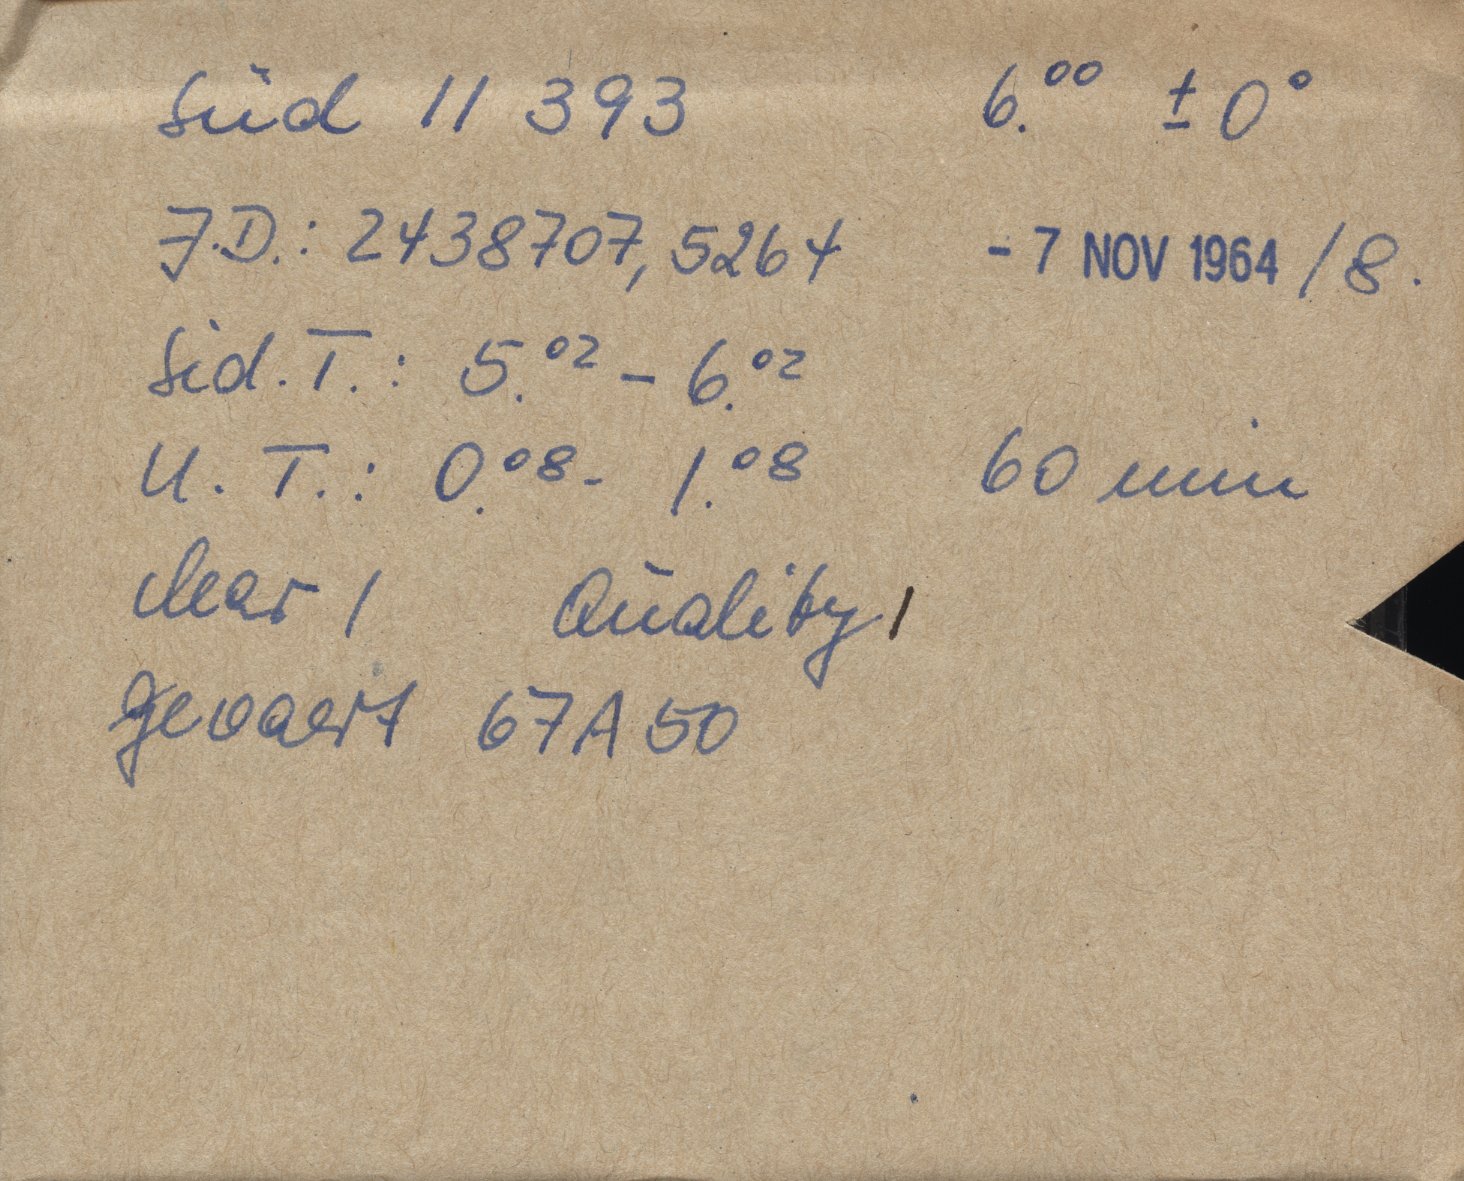 Süd 11 393 6.⁰⁰ ± 0°
J.D.: 2438707,5264 - 7 NOV 1964 / 8.
Sid. T.: 5.⁰² - 6.⁰²
U. T.: 0.⁰⁸ - 1.⁰⁸ 60 min
clear 1 Quality 1
gevaert 67A50